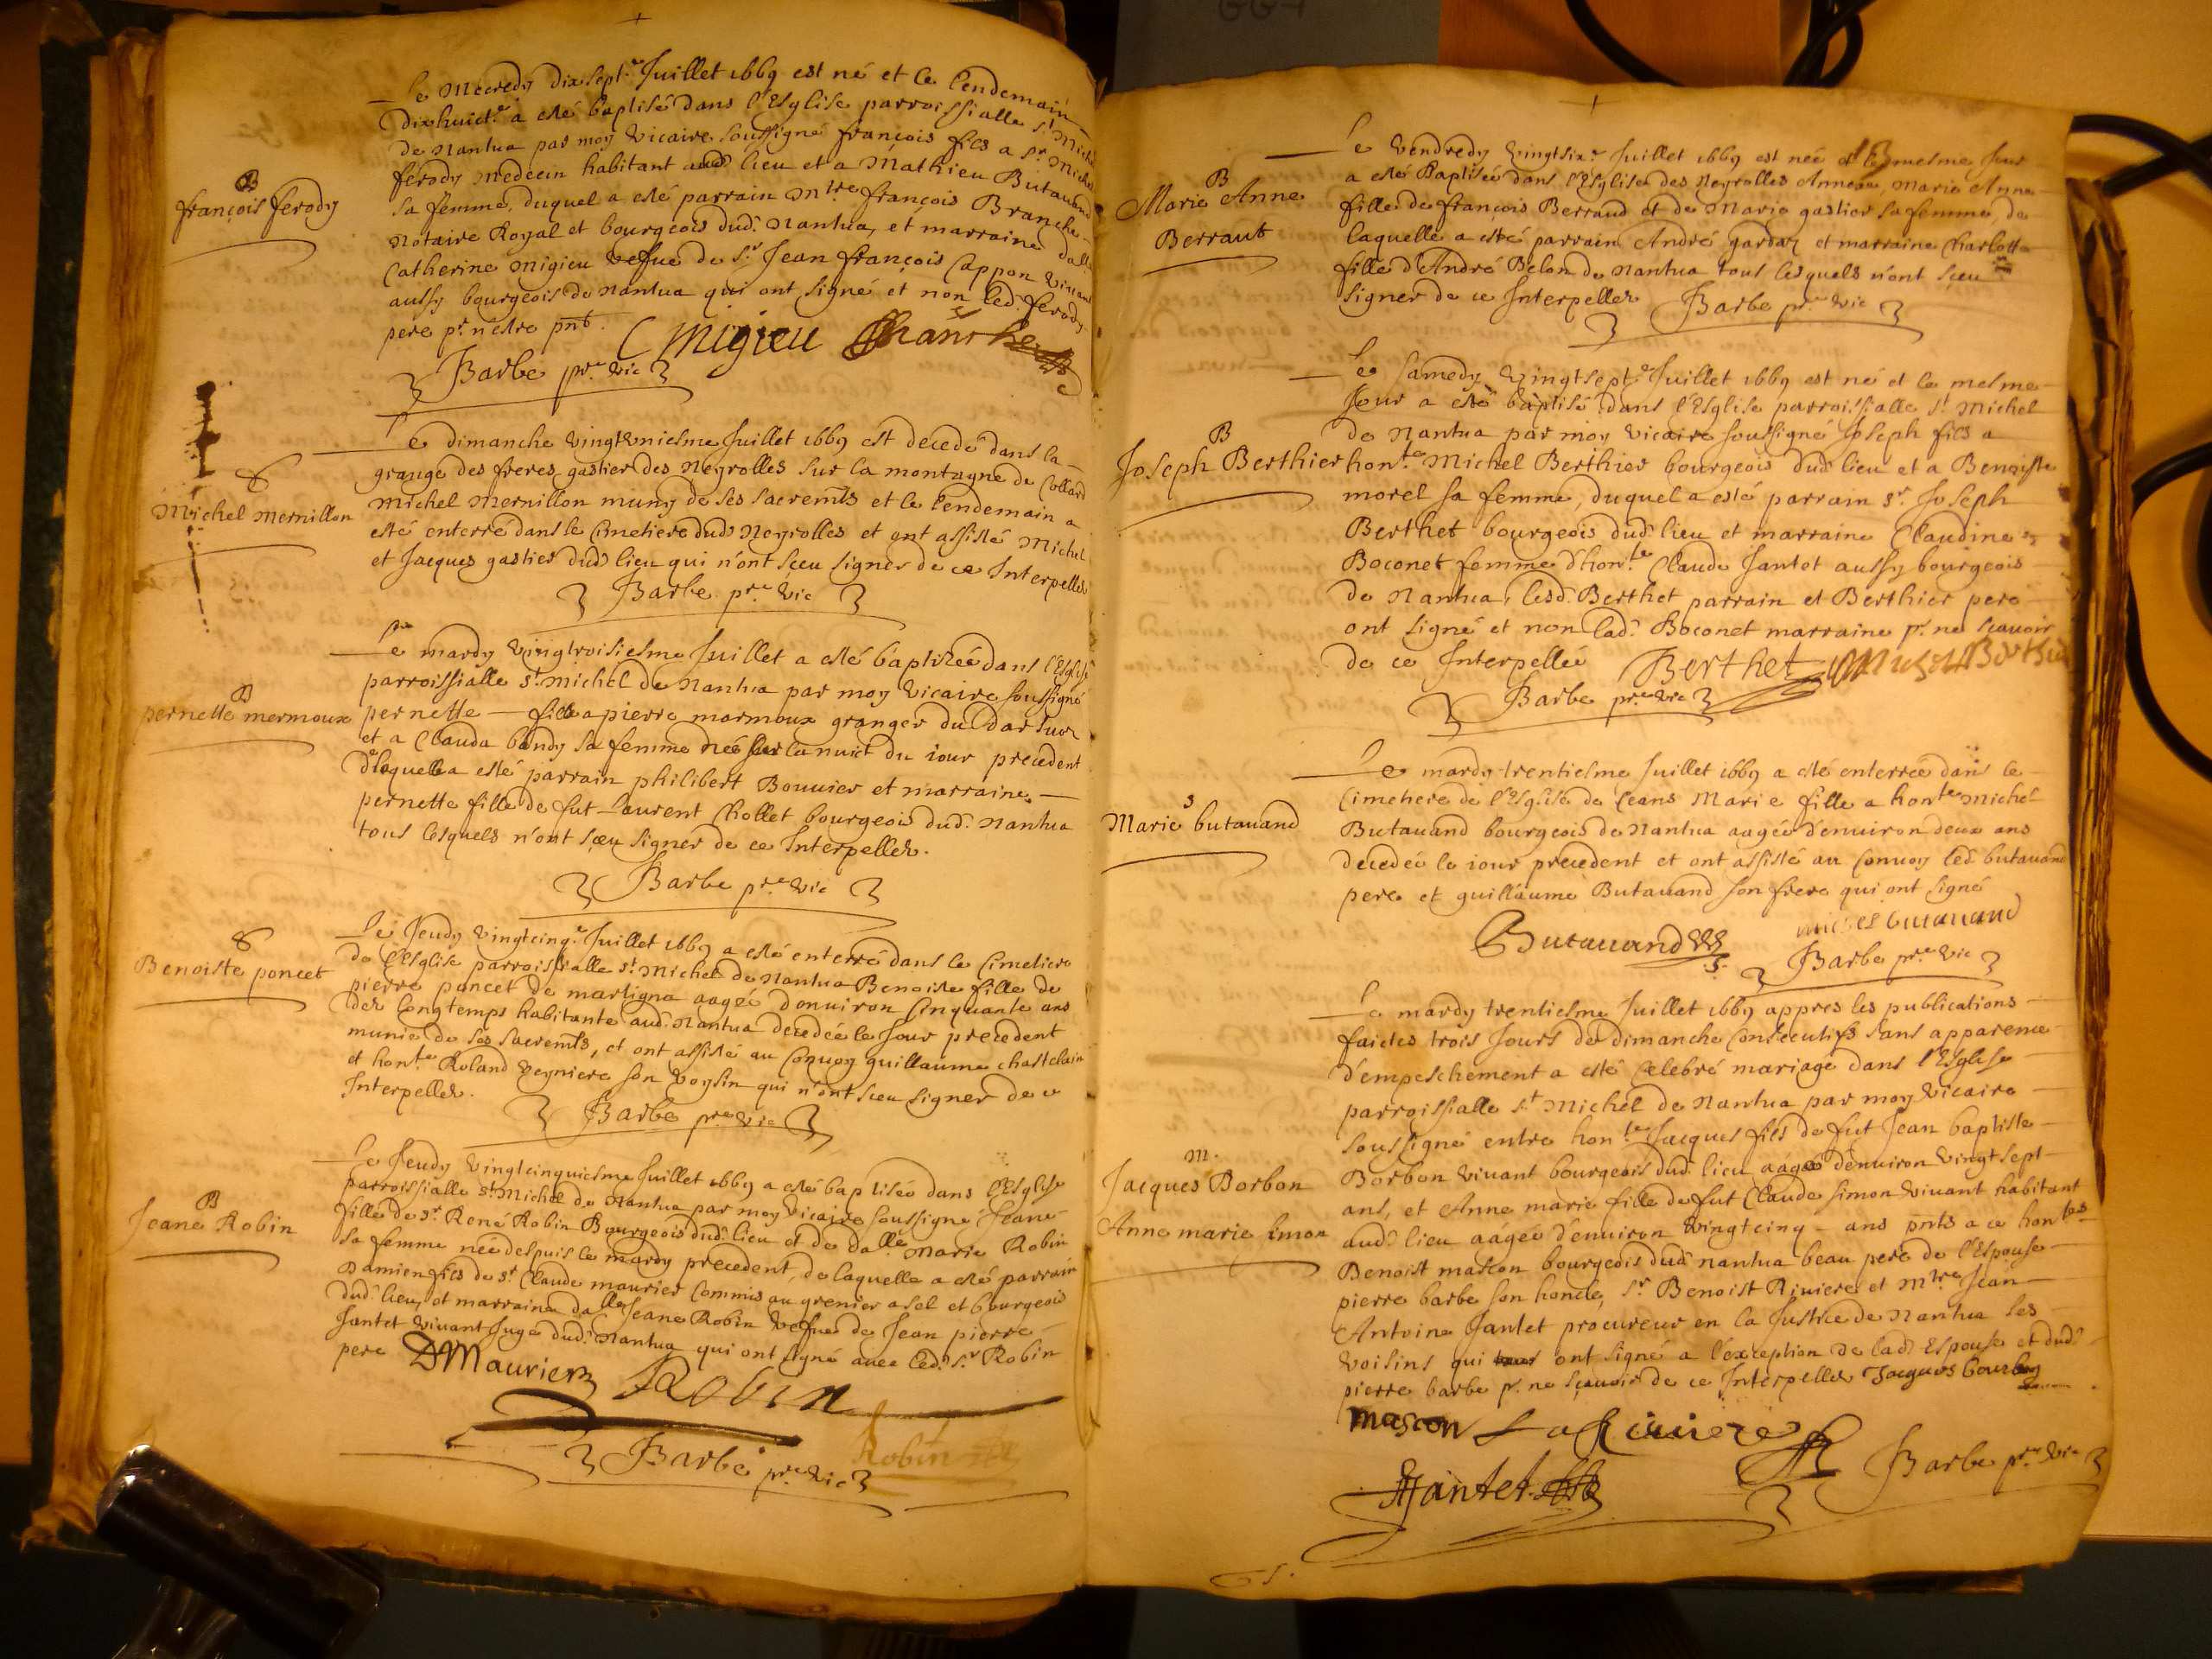 Le Mecredy dix sept.e Juillet 1669 est né et le lendemain
dixhuict.e a esté baptisé dans l'Esglise parroissialle st Michel
de Nantua par moy vicaire soussigné françois fils a sr Michel
ferody medecin habitant aud lieu et a Mathieu Butavand
B
françois ferody
sa femme, duquel a esté parrain Mtre françois Branche
Notaire Royal et bourgeois dud. Nantua, et marraine dalle
Catherine migieu vefue de Sr Jean françois Cappon vivant
aussy bourgeois de Nantua qui ont signé et non led. ferody
pere pr n'estre pnt.
C Migieu Branche
Barbe pre vic
Le dimanche vingt vniesme Juillet 1669 est decedé dans la
grange des freres gastier des Neyrolles sur la montagne de Collard
8
Michel mernillon
Michel Mernillon muny de ses sacremts et le lendemain a
esté enterré dans le Cimetiere dud Neyrolles et ont assisté Michel
et Jacques gastier dud lieu qui n'ont sceu signer de ce Interpellés
Barbe pre vic
Le mardy vingtroisiesme Juillet a esté baptizée dans l'Esglise
parroissialle st michel de Nantua par moy vicaire soussigné
B
pernette mermoux
pernette — fille a pierre marmoux granger du
et a Clauda bondy sa femme née sur la nuict du iour precedent
de laquelle a esté parrain philibert Bouvier et marraine
pernette fille de fut Laurent Chollet bourgeois dud. Nantua
tous lesquels n'ont sceu signer de ce Interpellés.
Barbe pre vic
Le Jeudy vingtcinq.e Juillet 1669 a esté enterré dans le Cimetiere
8
Benoiste poncet
de l'Esglise parroissialle st Michel de Nantua Benoiste fille de
pierre poncet de martigna aagée d'environ Cinquante ans
des longtemps habitante aud. Nantua decedée le Jour precedent
munie de ses sacremts, et ont assisté au Convoy guillaume chastelain
et honte Roland veyniere son voysin qui n'ont sceu signer de ce
Interpellés.
Barbe pre vic
Le Jeudy vingtcinquiesme Juillet 1669 a esté baptisée dans l'Esglise
parroissialle st Michel de Nantua par moy vicaire soussigné Jeane
B
Jeane Robin
fille de sr René Robin Bourgeois dud. lieu et de dalle Marie Robin
sa femme née despuis le mardy precedent, de laquelle a esté parrain
Damien fils de sr Claude maurier Commis au grenier a sel et bourgeois
dud. lieu, et marraine dalle Jeane Robin vefue de Jean pierre
Jantet vivant Juge dud. Nantua qui ont signé avec led. sr Robin
pere
DMaurier Robin
Robin
Barbe pre vic
Le vendredy vingtsix.e Juillet 1669 est née et le mesme Jour
B
Marie Anne
Berraut
a esté Baptisée dans l'Esglise des Neyrolles Marie Anne
fille de françois Berraud et de Marie gastier sa femme de
laquelle a esté parrain André et marraine Charlotte
fille d'André Belon de Nantua tous lesquels n'ont sceu
signer de ce Interpellés
Barbe pre vic
Le samedy vingtsept.e Juillet 1669 est né et le mesme
Jour a esté baptisé dans l'Esglise parroissialle st Michel
B
Joseph Berthier
de Nantua par moy vicaire soussigné Joseph fils a
honte Michel Berthier bourgeois dud lieu et a Benoiste
morel sa femme, duquel a esté parrain sr. Joseph
Berthet bourgeois dud. lieu et marraine Claudine
Boconet femme d'honte Claude Jantet aussy bourgeois
de Nantua, lesd. Berthet parrain et Berthier pere
ont signé et non lad. Boconet marraine pr ne sçavoir
de ce Interpellée
Berthet Michel Berthier
Barbe pre vic
Le mardy trentiesme Juillet 1669 a esté enterrée dans le
Cimetiere de l'Esglise de Ceans Marie fille a honte Michel
S
Marie butavand
Butavand bourgeois de Nantua aagée d'environ deux ans
decedée le iour precedent et ont assisté au Convoy led. butavand
pere et guillaume Butavand son frere qui ont signé
Butavand michel butavand
Barbe pre vic
Le mardy trentiesme Juillet 1669 appres les publications
faictes trois Jours de dimanche Consecutifs sans apparence
d'empeschement a esté Celebré mariage dans l'Esglise
parroissialle st Michel de Nantua par moy vicaire
soussigné entre honte Jacques fils de fut Jean baptiste
m.
Jacques Borbon
Anne marie simon
Borbon vivant bourgeois dud. lieu aagée d'environ vingtsept
ans, et Anne marie fille de fut Claude simon vivant habitant
aud. lieu aagée d'environ vingtcinq — ans pnts a ce hontes
Benoist mascon bourgeois dud Nantua beau pere de l'Espouse
pierre barbe son honcle, sr Benoist Riviere et Mtre Jean
Antoine Jantet procureur en la Justice de Nantua ses
voisins qui ont signé a l'exception de lad Espouse et dud
pierre barbe pr ne sçavoir de ce Interpellés Jacques bourbon
mascon La Riviere
Jantet
Barbe pre vic